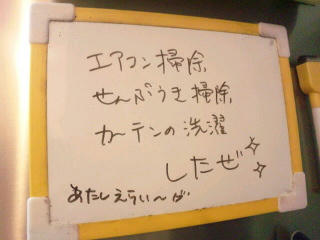 エアコン掃除
せんぷうき掃除
カーテンの洗濯
したぜ☆☆
あたしえらい〜が